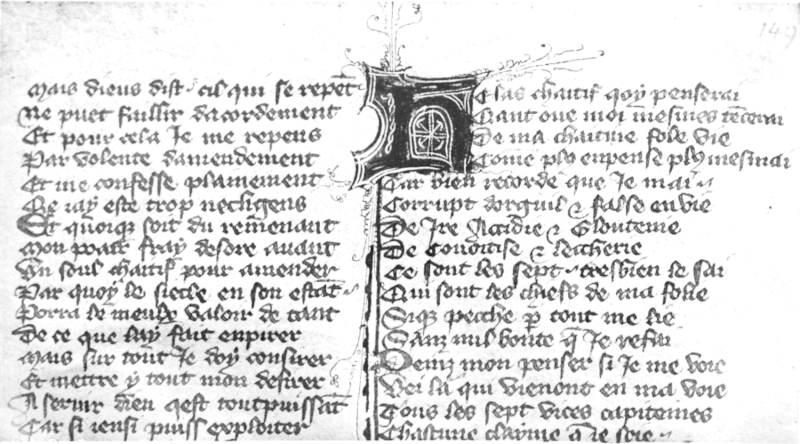 149
Mais dieus dist cil qui se repẽt
Ne puet faillir dacordement
Et pour cela Je me repens
Par volente damendement
Et me confesse plainement
Qe iay este trop necligens
Et quoiqꝫ soit du remenant
Mon poair fray desore auant
Un soul chaitif pour amender
Par quoy le siecle en son estãt
Porra le meulx valoir de tant
De ce que lay fait enpirer
Mais sur tout Je doy consirer
Et mettre y tout mon desirer
A seruir dieu qest toutpuissãt
Car si iensi puiss exploiter
Helas chaitif qoy penserai
Qant oue moi mesmes tẽcerai
De ma chaitiue fole vie
Come plꝰ enpense plꝰ mesmai
Car bien recorde que Je mai
Corrupt dorguil & false envie
De Ire Accidie & Glotenie
De Couoitise & leccherie
Ce sont les sept tresbien le sai
Qui sont les chiefs de ma folie
Siqꝫ pecche ꝑ tout me lie
Sanz nul bonte q̃ Je refai
Deinz mon penser si Je me voie
Vei la qui vienont en ma voie
Tous les sept vices capiteines
Chascune clayme q̃ Je soie